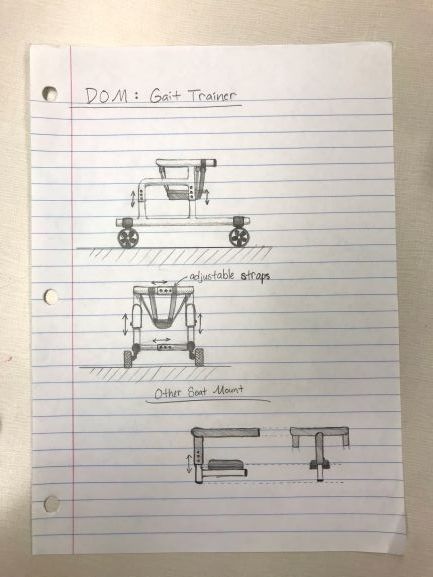 DOM: Gait Trainer
adjustable straps
Other Seat Mount